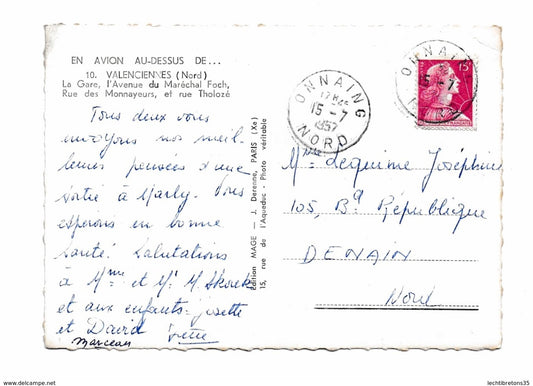 EN AVION AU-DESSUS DE...
10. VALENCIENNES (Nord)
La Gare, l'Avenue du Maréchal Foch,
Rue des Monnayeurs, et rue Tholozé
Tous deux vous
envoyons nos meil-
leures pensées d'une
sortie à Marly. Vous
espérons en bonne
santé. Salutations
à Mme et Mr M.
et aux enfants. Josette
et David
Marceau
Edition MAGE — J. Derenne, PARIS (Xe)
15, rue de l'Aqueduc - Photo véritable
ONNAING
12H
15-7
1957
NORD
ONNAING
15-7
15F
Mme Lequime Joséphine
105, Bd République
DENAIN
Nord
lechtibretons35
lechtibretons35